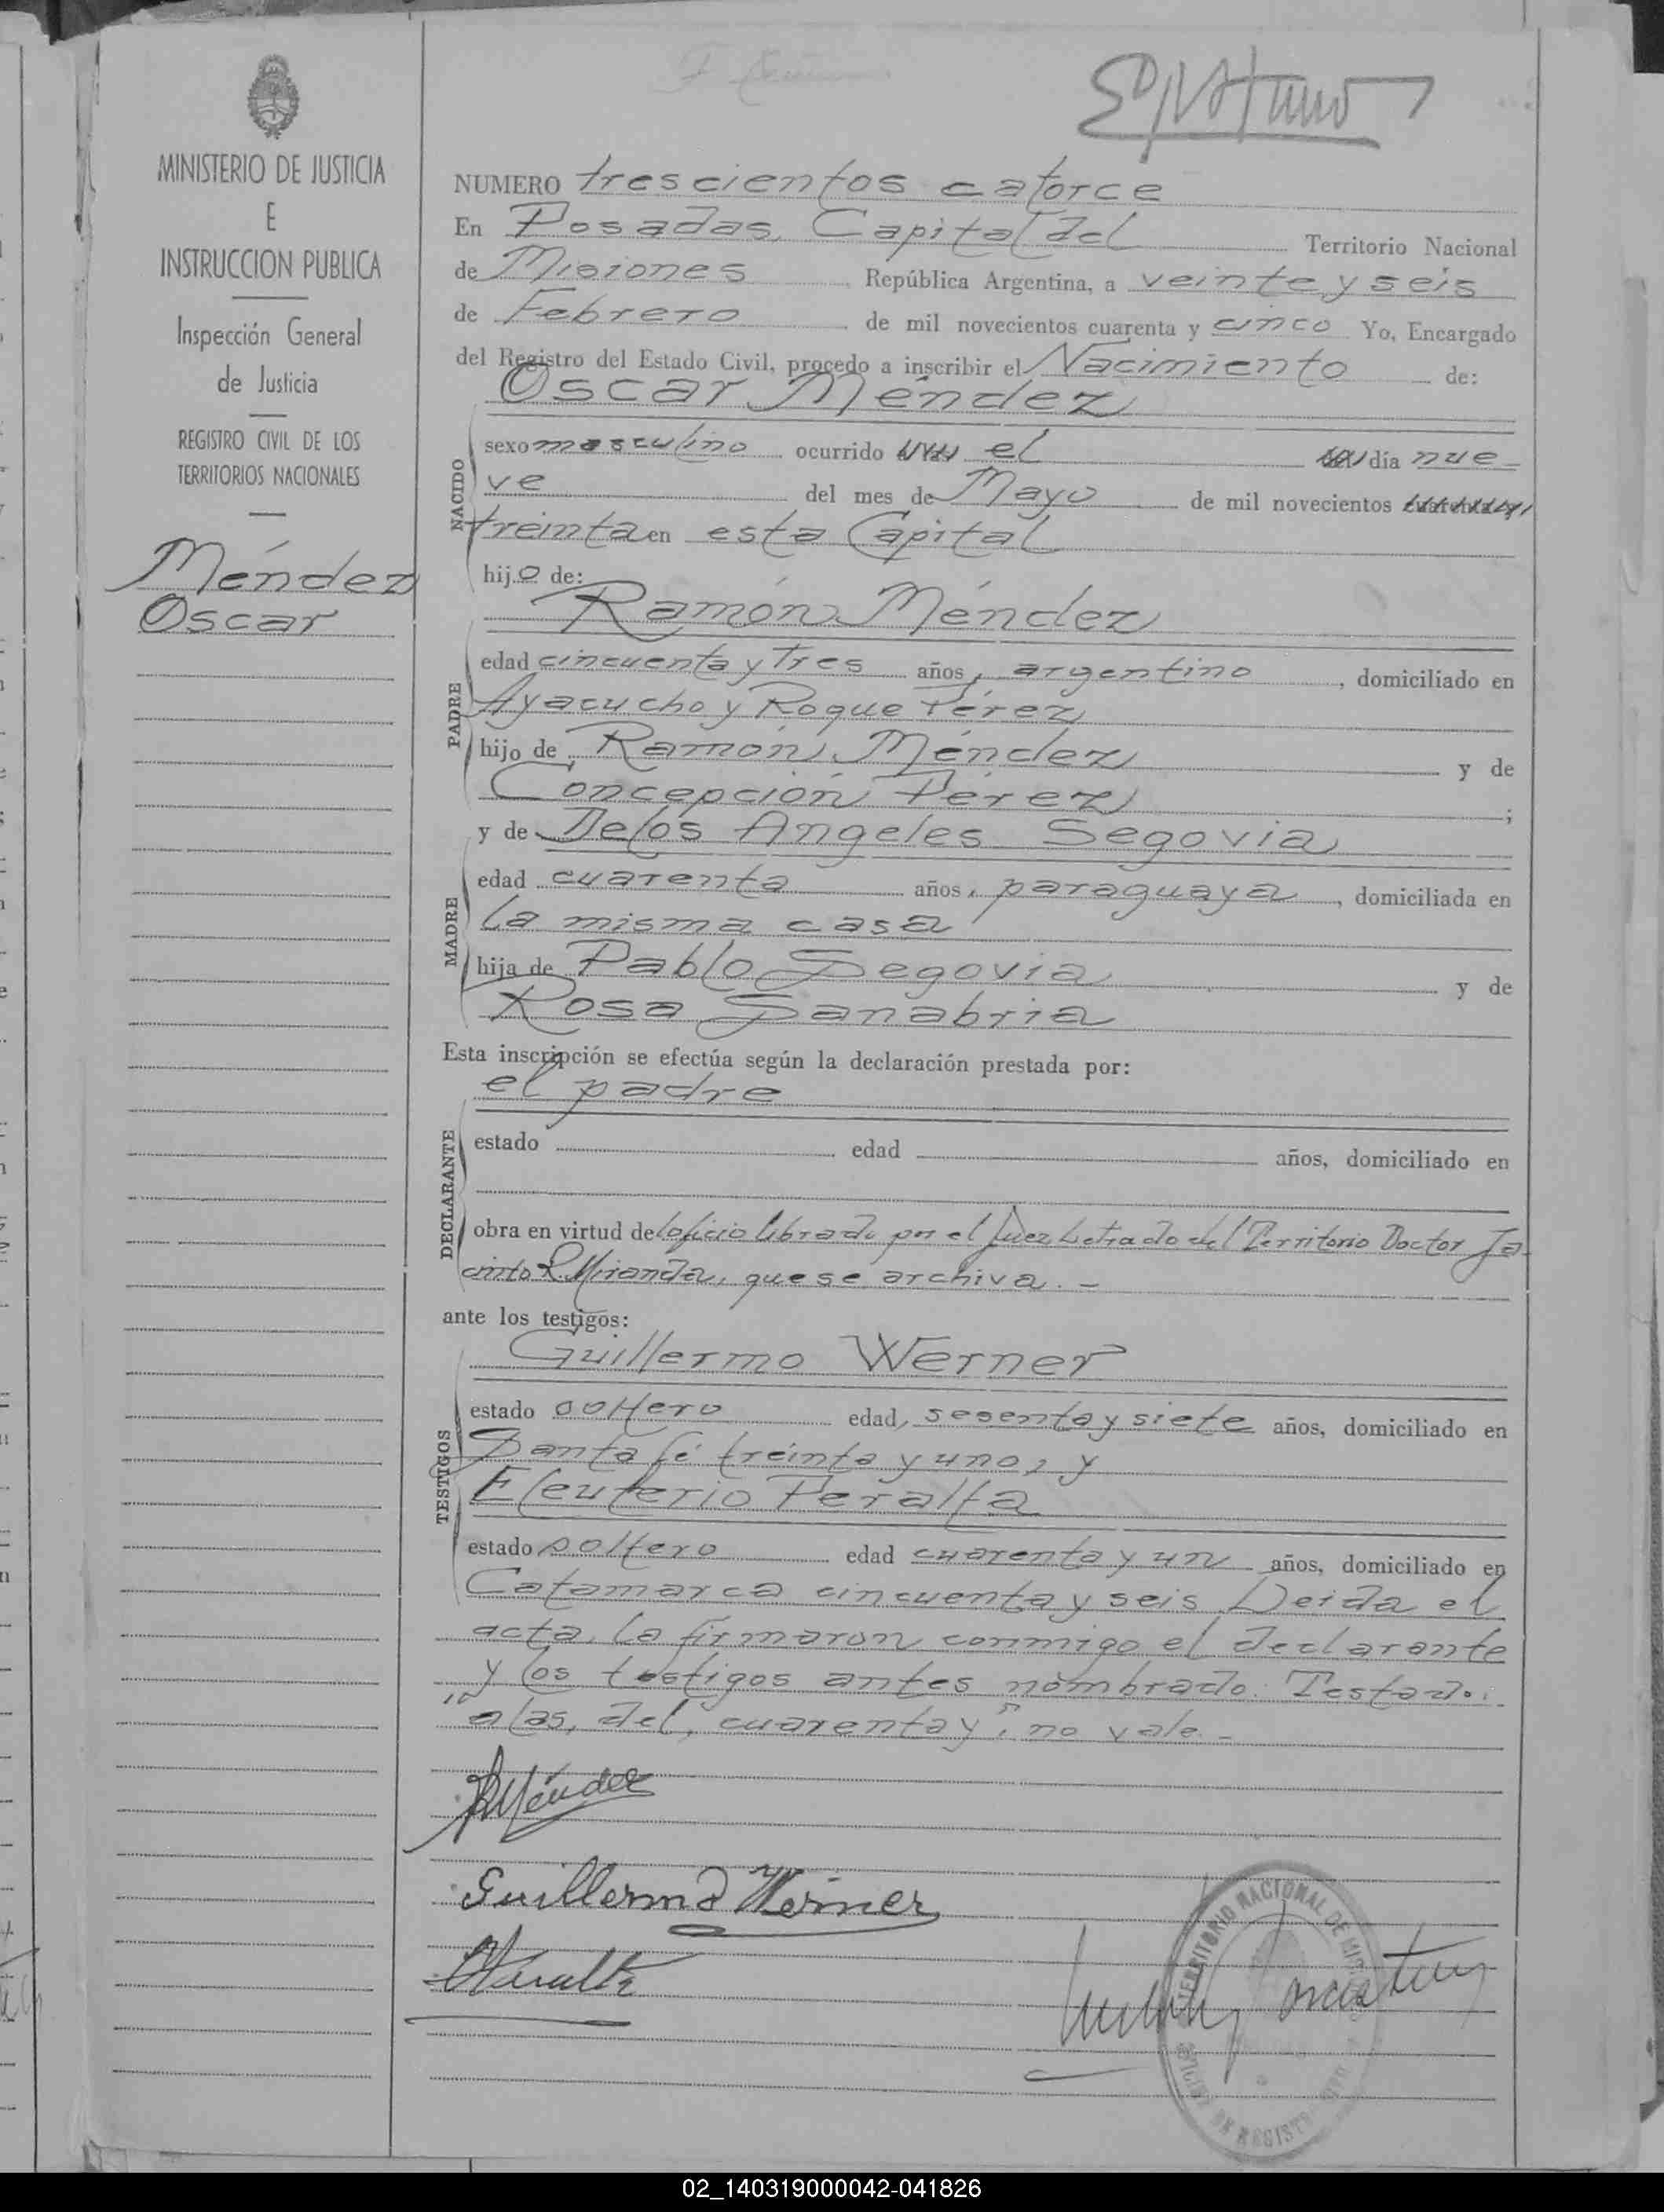 MINISTERIO DE JUSTICIA
E
INSTRUCCION PUBLICA
Inspección General
de Justicia
REGISTRO CIVIL DE LOS
TERRITORIOS NACIONALES
Méndez
Oscar
NUMERO trescientos catorce
En Posadas, Capital del Territorio Nacional
de Misiones República Argentina, a veinte y seis
de Febrero de mil novecientos cuarenta y cinco Yo, Encargado
del Registro del Estado Civil, procedo a inscribir el Nacimiento de:
Oscar Méndez
NACIDO
sexo masculino ocurrido el día nue-
ve del mes de Mayo de mil novecientos cuarenta y
treinta en esta Capital
hijo de:
Ramón Méndez
PADRE
edad cincuenta y tres años, argentino, domiciliado en
Ayacucho y Roque Pérez
hijo de Ramón Méndez y de
Concepción Pérez;
y de Delos Angeles Segovia
MADRE
edad cuarenta años, paraguaya, domiciliada en
la misma casa
hija de Pablo Segovia y de
Rosa Sanabria
Esta inscripción se efectúa según la declaración prestada por:
el padre
DECLARANTE
estado edad años, domiciliado en
obra en virtud del oficio librado por el Juez Letrado del Territorio Doctor Ja-
cinto R. Miranda, que se archiva. -
ante los testigos:
Guillermo Werner
TESTIGOS
estado soltero edad, sesenta y siete años, domiciliado en
Santa fé treinta y uno, y
Eleuterio Peralta
estado soltero edad cuarenta y un años, domiciliado en
Catamarca cincuenta y seis Leida el
acta, la firmaron conmigo el declarante
y los testigos antes nombrado. Testado:
"a las, del, cuarenta y" no vale -
RMéndez
Guillermo Werner
EPeralta
TERRITORIO NACIONAL DE MISIONES
02_140319000042-041826